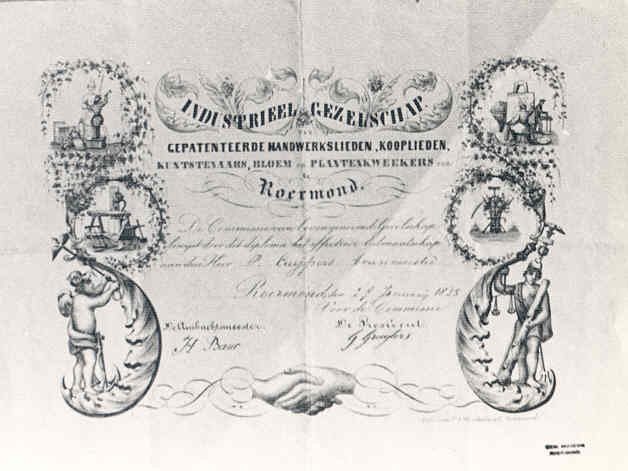 INDUSTRIEEL GEZELSCHAP
VAN
GEPATENTEERDE HANDWERKSLIEDEN, KOOPLIEDEN,
KUNSTENAARS, BLOEM en PLANTENKWEEKERS
Roermond.
De Commissie van bovengenoemd Gezelschap
door dit diploma het effectieve lidmaatschap
aan den Heer P. Cuypers
Roermond, den 29 January 18
Voor de Commissie
De Ambachtsmeester. De President